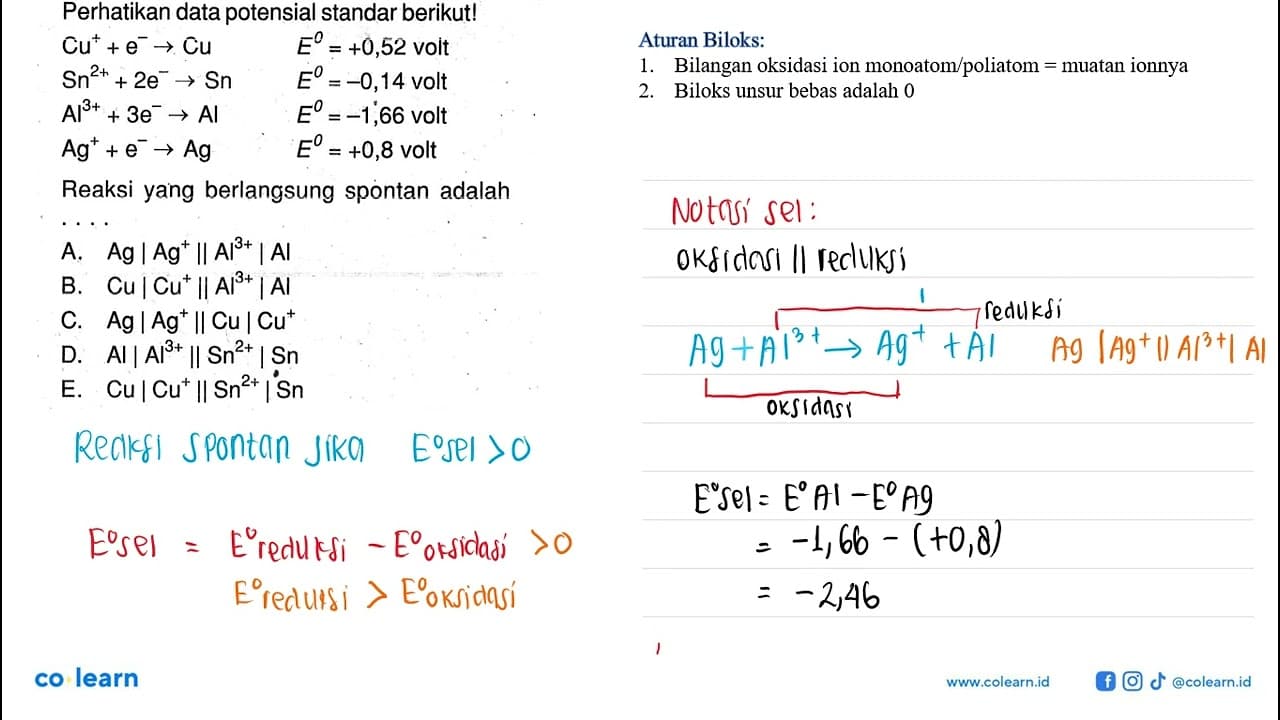 Perhatikan data potensial standar berikut!
Cu⁺ + e⁻ → Cu E⁰ = +0,52 volt
Sn²⁺ + 2e⁻ → Sn E⁰ = –0,14 volt
Al³⁺ + 3e⁻ → Al E⁰ = –1,66 volt
Ag⁺ + e⁻ → Ag E⁰ = +0,8 volt
Reaksi yang berlangsung spontan adalah
. . . .
A. Ag | Ag⁺ || Al³⁺ | Al
B. Cu | Cu⁺ || Al³⁺ | Al
C. Ag | Ag⁺ || Cu | Cu⁺
D. Al | Al³⁺ || Sn²⁺ | Sn
E. Cu | Cu⁺ || Sn²⁺ | Sn
Reaksi spontan jika E°sel > 0
E°sel = E°reduksi – E°oksidasi > 0
E°reduksi > E°oksidasi
Aturan Biloks:
1. Bilangan oksidasi ion monoatom/poliatom = muatan ionnya
2. Biloks unsur bebas adalah 0
Notasi sel:
oksidasi || reduksi
reduksi
Ag + Al³⁺ → Ag⁺ + Al Ag | Ag⁺ || Al³⁺ | Al
oksidasi
E°sel = E° Al – E° Ag
= -1,66 – (+0,8)
= -2,46
co learn
www.colearn.id @colearn.id